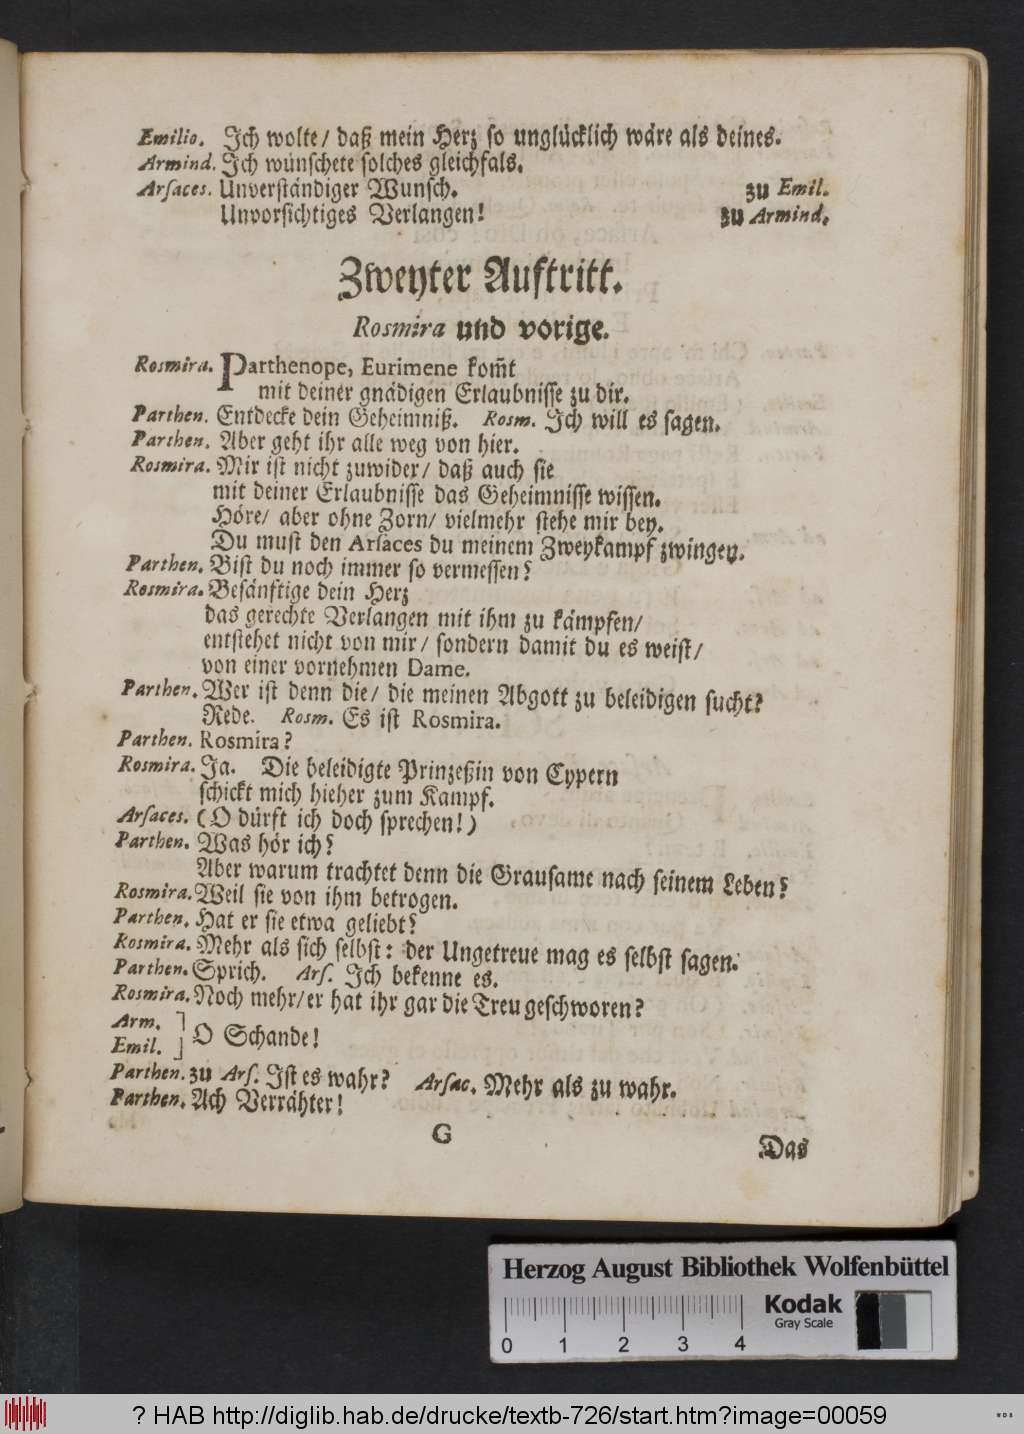 Emilio. Ich wolte/ daß mein Herz so unglücklich wäre als deines.
Armind. Ich wünschete solches gleichfals.
Arsaces. Unverständiger Wunsch. zu Emil.
Unvorsichtiges Verlangen! zu Armind.
Zweyter Auftritt.
Rosmira und vorige.
Rosmira. Parthenope, Eurimene kom̃t
mit deiner gnädigen Erlaubnisse zu dir.
Parthen. Entdecke dein Geheimniß. Rosm. Ich will es sagen.
Parthen. Aber geht ihr alle weg von hier.
Rosmira. Mir ist nicht zuwider/ daß auch sie
mit deiner Erlaubnisse das Geheimnisse wissen.
Höre/ aber ohne Zorn/ vielmehr stehe mir bey.
Du must den Arsaces du meinem Zweykampf zwingen.
Parthen. Bist du noch immer so vermessen?
Rosmira. Besänftige dein Herz
das gerechte Verlangen mit ihm zu kämpfen/
entstehet nicht von mir/ sondern damit du es weist/
von einer vornehmen Dame.
Parthen. Wer ist denn die/ die meinen Abgott zu beleidigen sucht?
Rede. Rosm. Es ist Rosmira.
Parthen. Rosmira?
Rosmira. Ja. Die beleidigte Prinzeßin von Cypern
schickt mich hieher zum Kampf.
Arsaces. (O dürft ich doch sprechen!)
Parthen. Was hör ich?
Aber warum trachtet denn die Grausame nach seinem Leben?
Rosmira. Weil sie von ihm betrogen.
Parthen. Hat er sie etwa geliebt?
Rosmira. Mehr als sich selbst: der Ungetreue mag es selbst sagen.
Parthen. Sprich. Ars. Ich bekenne es.
Rosmira. Noch mehr/ er hat ihr gar die Treu geschworen?
Arm. ]
Emil. ] O Schande!
Parthen. zu Ars. Ist es wahr? Arsac. Mehr als zu wahr.
Parthen. Ach Verrähter!
G
Das
Herzog August Bibliothek Wolfenbüttel
0 1 2 3 4
Kodak
Gray Scale
? HAB http://diglib.hab.de/drucke/textb-726/start.htm?image=00059